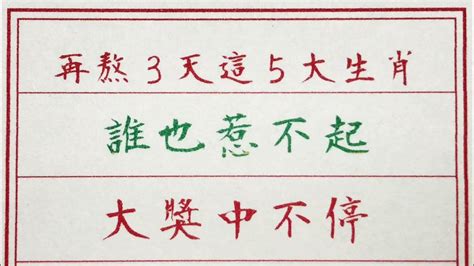 再熬3天這5大生肖
誰也惹不起
大獎中不停